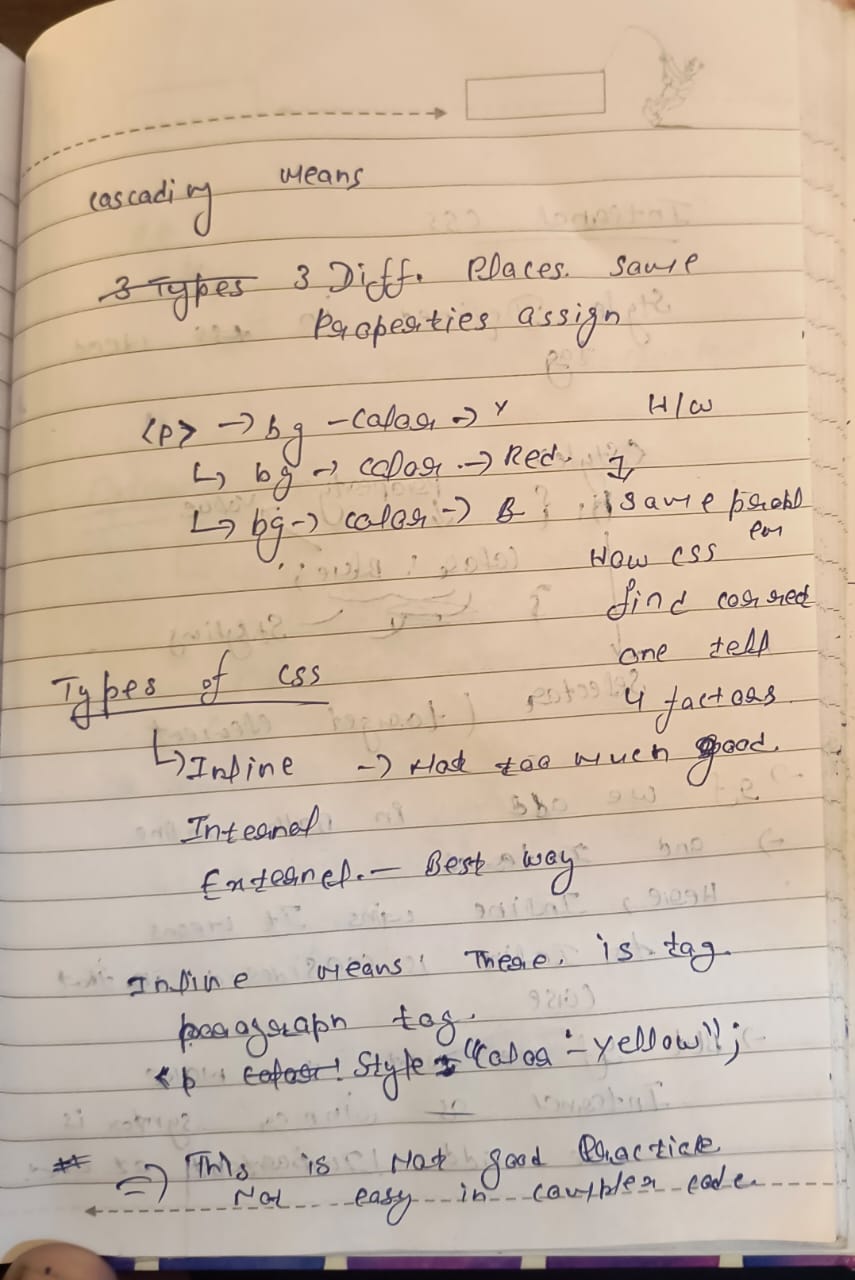 cascading means
3 Types 3 Diff. Places. same
Properties assign
<p> → bg - Color → Y
↳ bg → color → Red.
↳ bg → color → B
H/W
1,
same probl
em
How css
find correct
one tell
4 factors
Types of css
↳ Inline → Not too much good.
Internal
External. — Best way
Inline means: There. is tag.
paragraph tag.
<p color: Style = "Color :- yellow";
# ⇒ This is Not good Practice
Not easy in complex code.